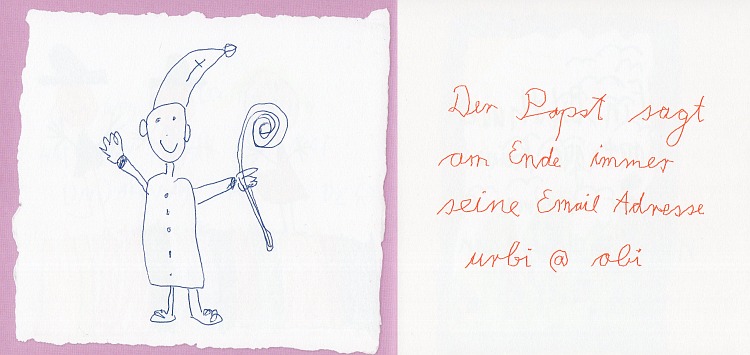 Der Papst sagt
am Ende immer
seine Email Adresse
urbi @ obi